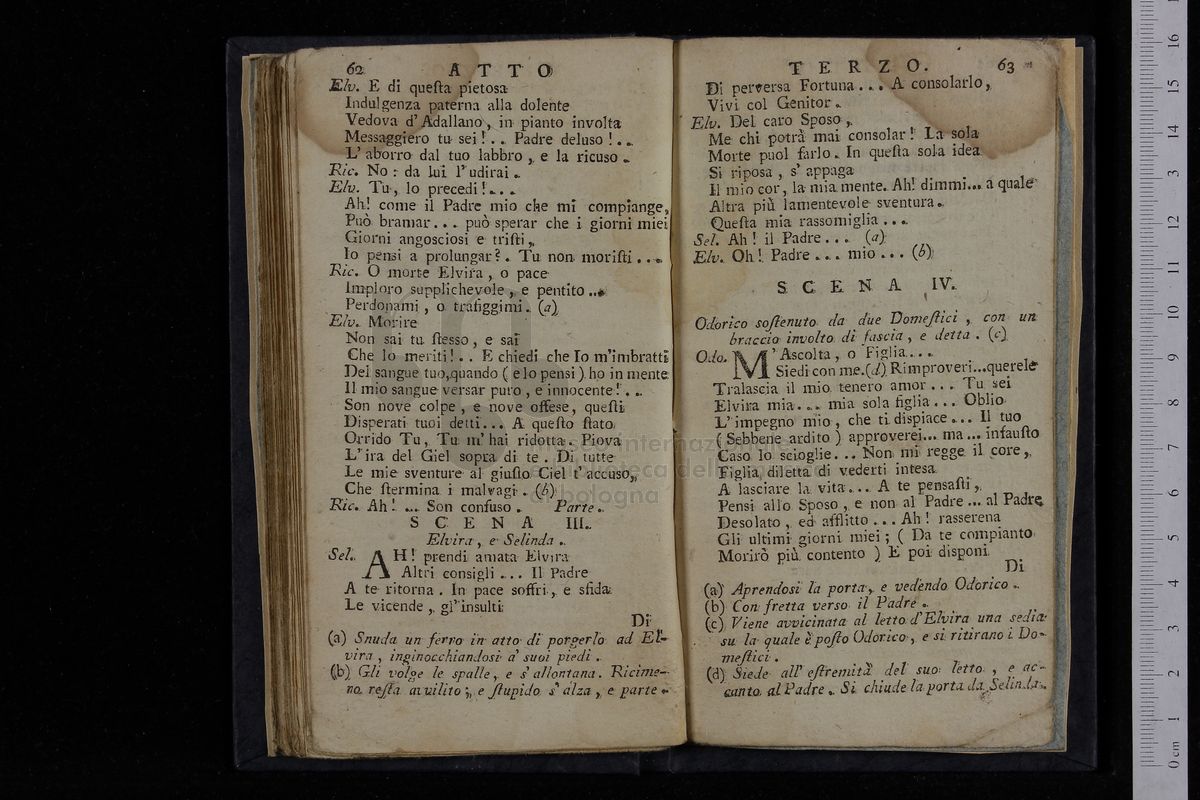 62 ATTO
Elv. E di queſta pietosa
Indulgenza paterna alla dolente
Vedova d'Adallano, in pianto involta
Messaggiero tu sei!... Padre deluso!...
L'aborro dal tuo labbro, e la ricuso.
Ric. No: da lui l'udirai.
Elv. Tu, lo precedi!...
Ah! come il Padre mio che mi compiange,
Può bramar... può sperar che i giorni miei
Giorni angosciosi e triſti,
Io pensi a prolungar?. Tu non moriſti...
Ric. O morte Elvira, o pace
Imploro supplichevole, e pentito...
Perdonami, o trafiggimi. (a)
Elv. Morire
Non sai tu ſtesso, e sai
Che lo meriti!.. E chiedi che Io m'imbratti
Del sangue tuo, quando (e lo pensi) ho in mente
Il mio sangue versar puro, e innocente!...
Son nove colpe, e nove offese, queſti
Disperati tuoi detti... A queſto ſtato
Orrido Tu, Tu m'hai ridotta. Piova
L'ira del Giel sopra di te. Di tutte
Le mie sventure al giuſto Ciel t'accuso,
Che ſtermina i malvagi. (b)
Ric. Ah! ... Son confuso. Parte.
SCENA III.
Elvira, e Selinda.
Sel. AH! prendi amata Elvira
Altri consigli... Il Padre
A te ritorna. In pace soffri, e sfida
Le vicende, gl'insulti
Di
(a) Snuda un ferro in atto di porgerlo ad El-
vira, inginocchiandosi a' suoi piedi.
(b) Gli volge le spalle, e s'allontana. Ricime-
no reſta avvilito, e ſtupido s'alza, e parte.
TERZO. 63
Di perversa Fortuna... A consolarlo,
Vivi col Genitor.
Elv. Del caro Sposo,
Me chi potrà mai consolar! La sola
Morte puol farlo. In queſta sola idea
Si riposa, s'appaga
Il mio cor, la mia mente. Ah! dimmi... a quale
Altra più lamentevole sventura.
Queſta mia rassomiglia...
Sel. Ah! il Padre... (a)
Elv. Oh! Padre... mio... (b)
SCENA IV.
Odorico soſtenuto da due Domeſtici, con un
braccio involto di fascia, e detta. (c)
Odo. M'Ascolta, o Figlia...
Siedi con me. (d) Rimproveri...querele
Tralascia il mio tenero amor... Tu sei
Elvira mia... mia sola figlia... Oblio
L'impegno mio, che ti dispiace... Il tuo
(Sebbene ardito) approverei... ma... infauſto
Caso lo scioglie... Non mi regge il core,
Figlia diletta di vederti intesa
A lasciare la vita... A te pensaſti,
Pensi allo Sposo, e non al Padre... al Padre
Desolato, ed afflitto... Ah! rasserena
Gli ultimi giorni miei; (Da te compianto
Morirò più contento) E poi disponi
Di
(a) Aprendosi la porta, e vedendo Odorico.
(b) Con fretta verso il Padre.
(c) Viene avvicinata al letto d'Elvira una sedia
su la quale è poſto Odorico, e si ritirano i Do-
meſtici.
(d) Siede all'eſtremità del suo letto, e ac-
canto al Padre. Si chiude la porta da Selinda.